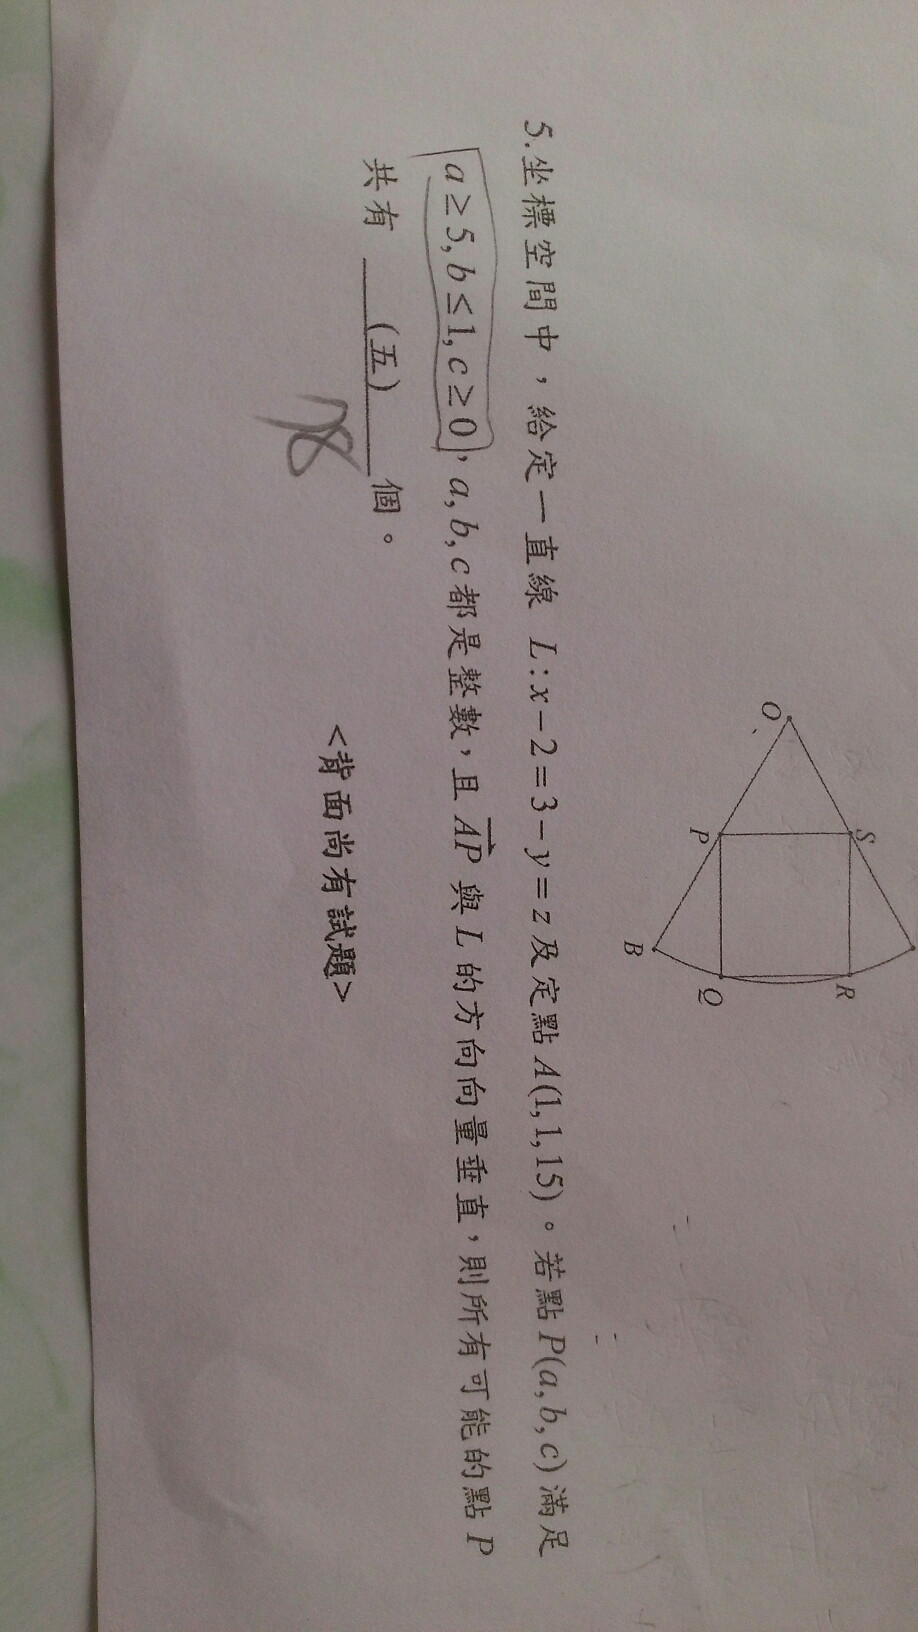 O
S
P
B
Q
R
5.坐標空間中，給定一直線 L:x−2=3−y=z及定點A(1,1,15)。若點P(a,b,c)滿足
a≥5,b≤1,c≥0，a,b,c都是整數，且AP與L的方向向量垂直，則所有可能的點P
共有 (五) 個。
78
<背面尚有試題>